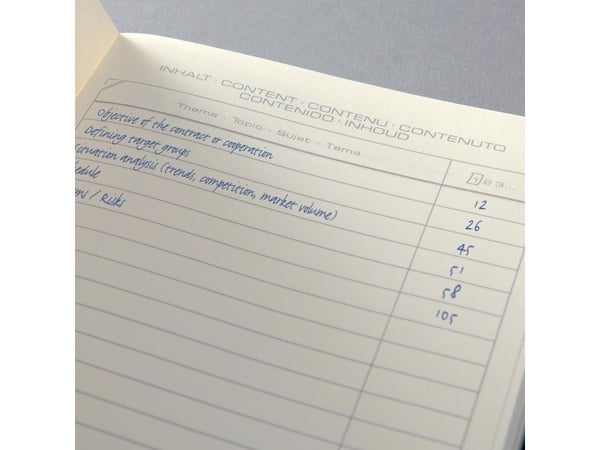 INHALT · CONTENT · CONTENU · CONTENUTO
CONTENIDO · INHOUD
Thema · Topic · Sujet · Tema 1 2 3...
Objective of the contract or cooperation 12
Defining target groups 26
Situation analysis (trends, competition, market volume) 45
edule 51
ons / Risks 58
105